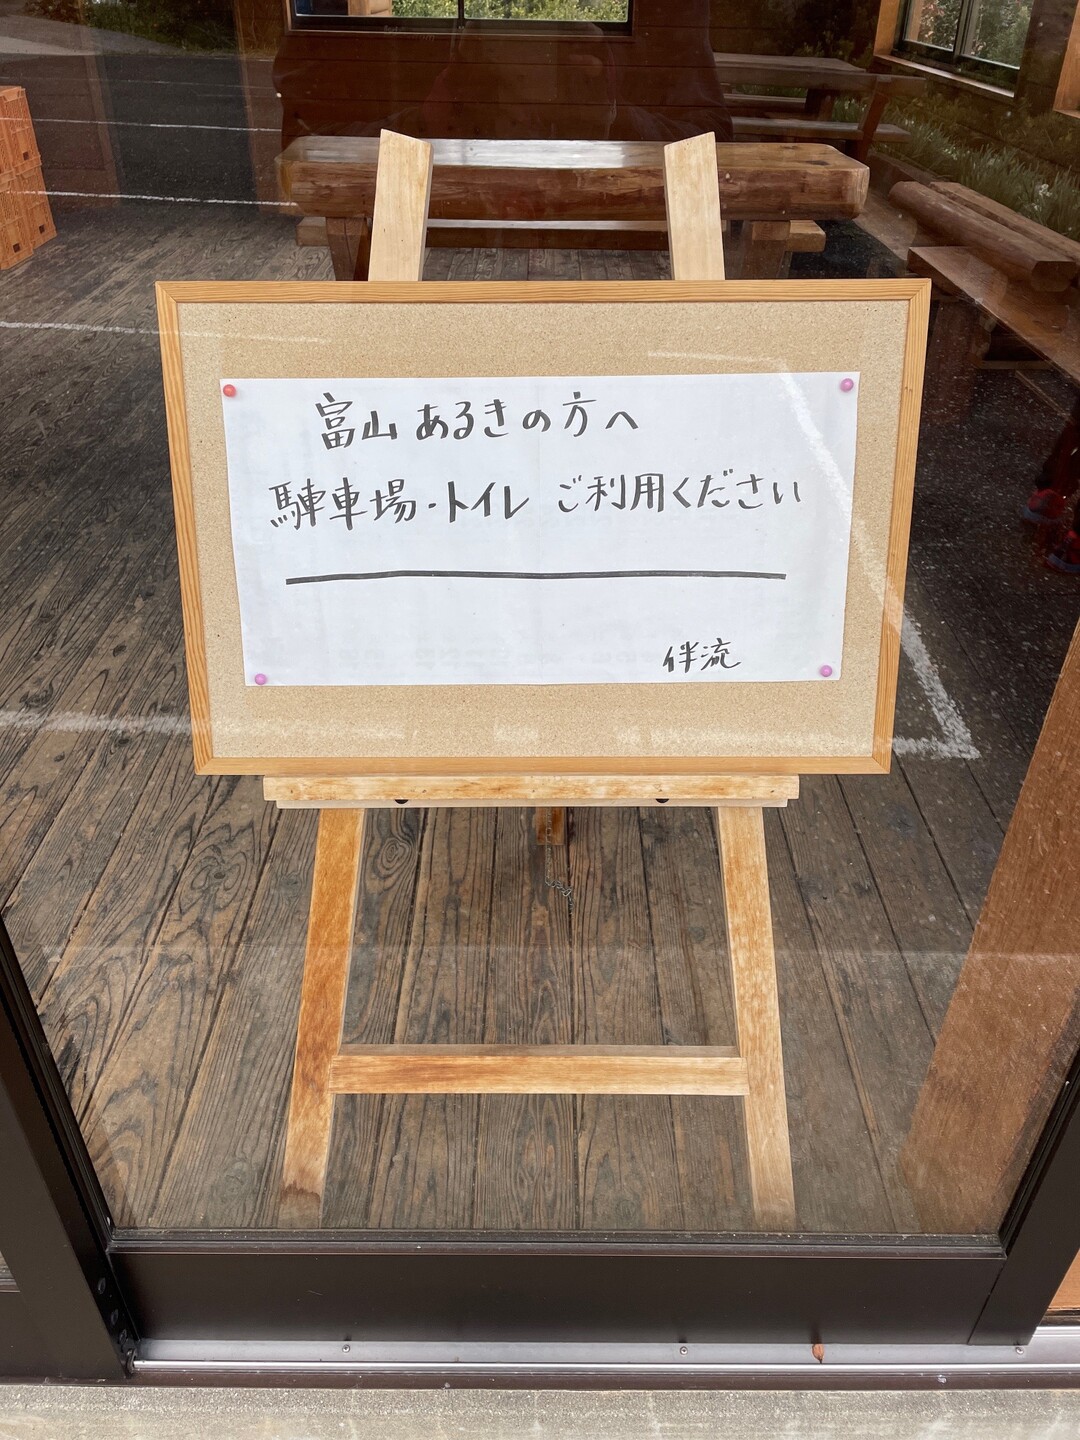 富山あるきの方へ
駐車場・トイレ ご利用ください
伴流